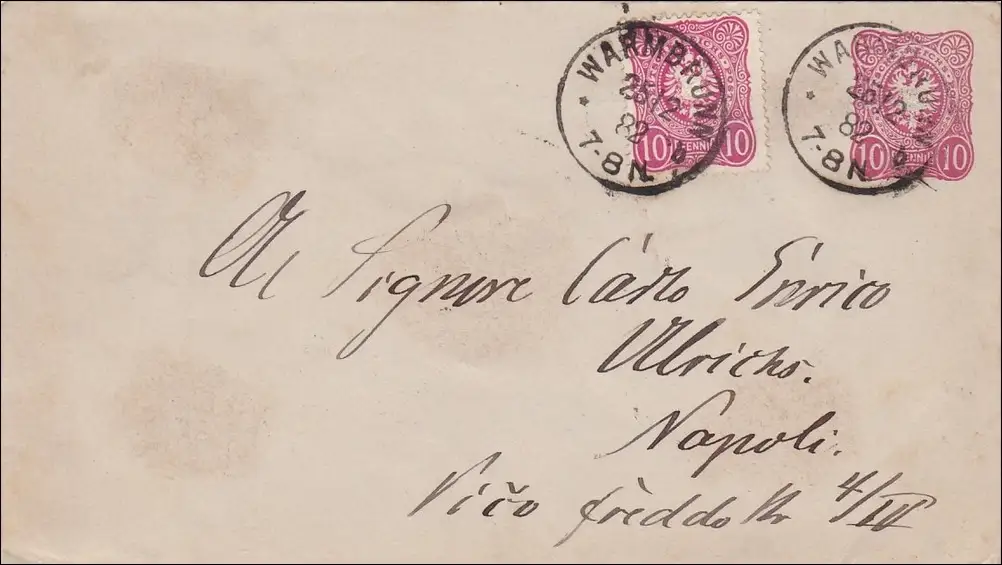 WARMBRUNN
25 12
82
7-8 N.
10 PFENNIG 10
WARMBRUNN
25 12
82
7-8 N.
10 PFENNIG 10
Al Signore Carlo Enrico
Ulrichs.
Napoli.
Vičo frèddo No 4/IV